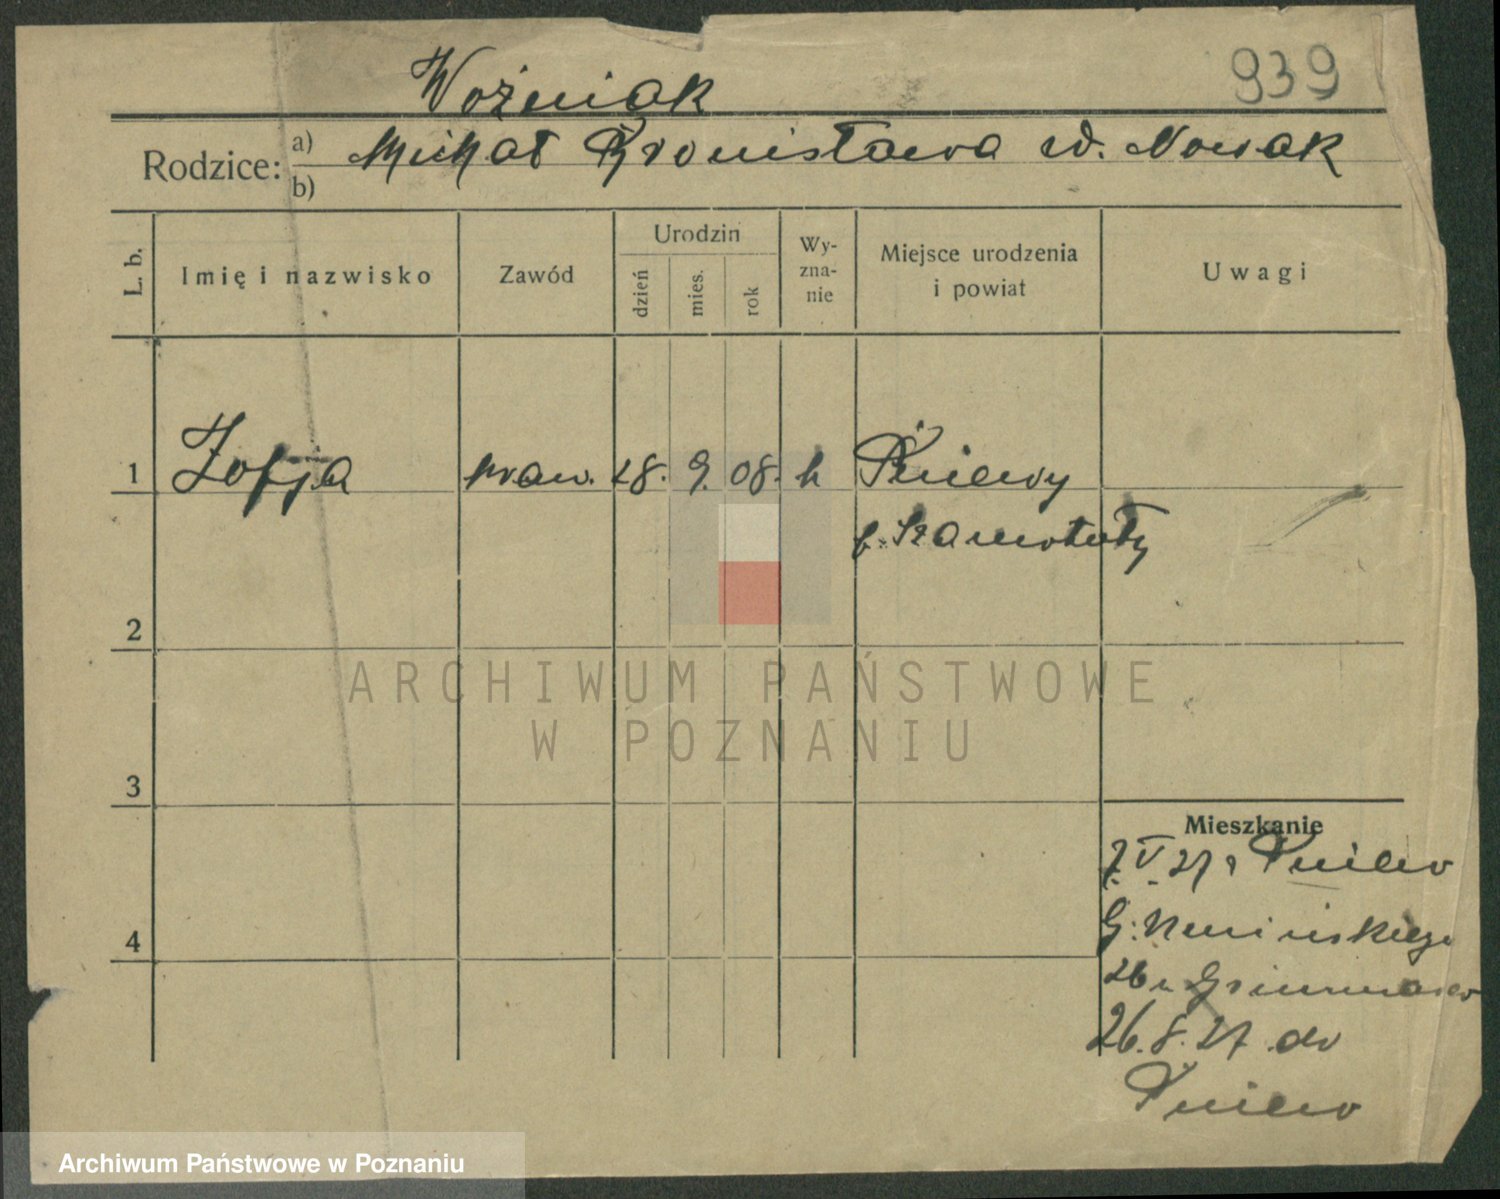 Woźniak
939
Rodzice:
a) Michał Bronisława w. Nowak
b)
L. b.
Imię i nazwisko
Zawód
Urodzin
dzień
mies.
rok
Wy-
zna-
nie
Miejsce urodzenia
i powiat
Uwagi
1 Zofja 28. 9. 08. k Pniewy
p. Szamotuły
2
3
4
Mieszkanie
7. V. 27 z Pniew
G.
26
26. 8. 27. do
Pniew
ARCHIWUM PAŃSTWOWE
W POZNANIU
Archiwum Państwowe w Poznaniu